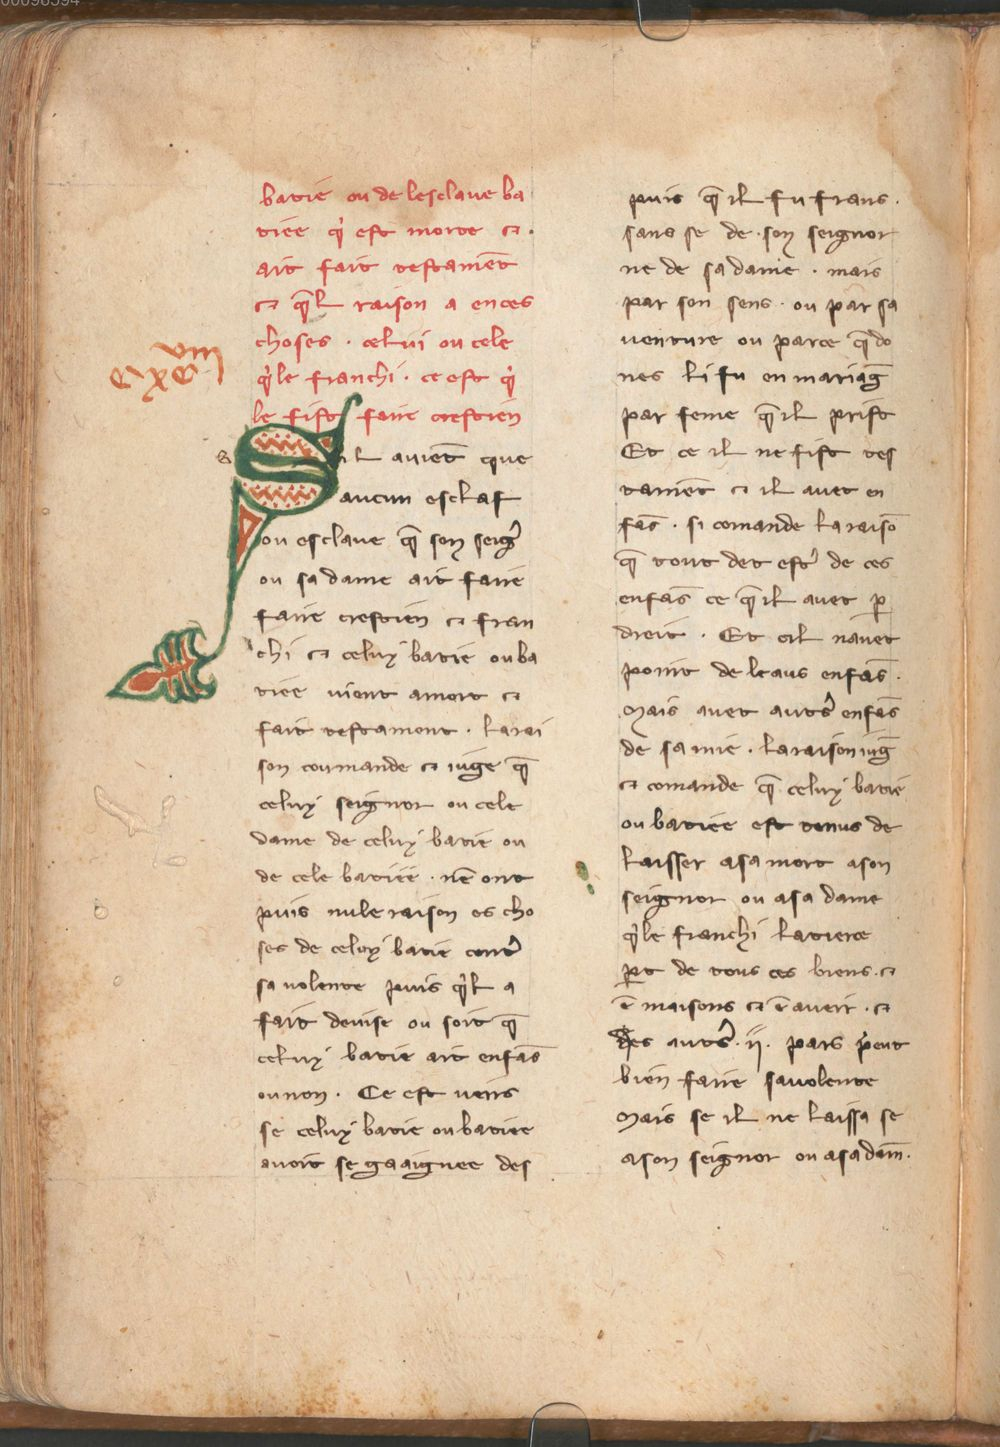 batie ou de lesclaue ba
tiee q̓ est morte ⁊ .
ait fait testamēt
⁊ q̄l raison a en ces
choses . celui ou cele
q̓le franchi . ce est q̓
le fist faire crestien
S il auiēt que
aucun esclaf
ou esclaue q̄ son seigr̄
ou sa dame ait faire
faire crestien ⁊ fran
chi ⁊ celuy batie ou ba
tiee uient a mort ⁊
fait testament . la rai
son coumande ⁊ iuge q̄
celuy seignor ou cele
dame de celuy batie ou
de cele batiee . nē ont
puis nule raison es cho
ses de celuy batie contr̄
sa uolente puis q̓l a
fait deuise ou soit q̄
celuy batie ait enfās
ou non . Ce est ueris
se celuy batie ou batiee
auoit se gaaignee des
puis q̄ il fu frans .
sans se de son seignor
ne de sa dame . mais
par son sens . ou par sa
uenture ou parce q̄ do
nes li fu en mariaḡ
par feme q̄ il prist
Et ce il ne fist tes
tamēt ⁊ il auet en
fās . si comande la raisō
q̄ tout det estr̄ de ces
enfās ce q̄ il auet p̱
dreit . Et cil nauet
point de leaus enfās .
Mais auet autr̄s enfās
de samie . la raison iuḡ
⁊ comande q̄ celuy batie
ou batiee est tenus de
laisser a sa mort a son
seignor ou a sa dame
q̓le franchi la tierce
p̱t de tous ces biens . ⁊
ē maisons ⁊ ē aueir . ⁊
des autr̄s . ii . pars p̓ent
bien faire sa uolente
Mais se il ne laissa se
a son seignor ou a sa dam̄ .